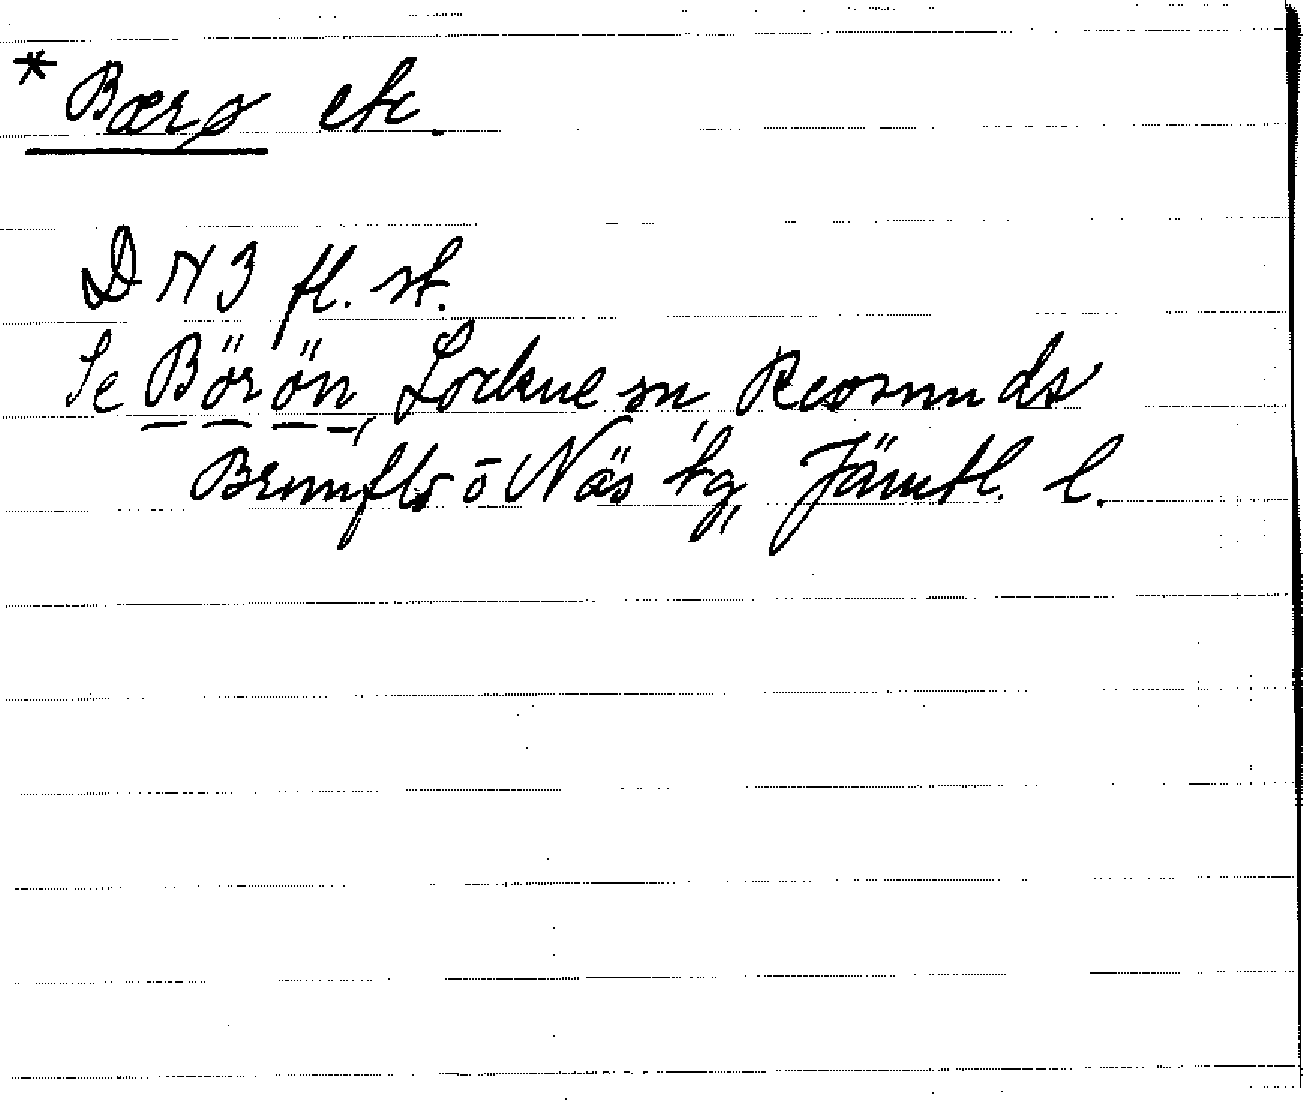 * Bærø etc.
D N 3 fl. st.
Se Börön, Lockne sn, Revsunds
Brunflo o Näs tg, Jämtl. l.